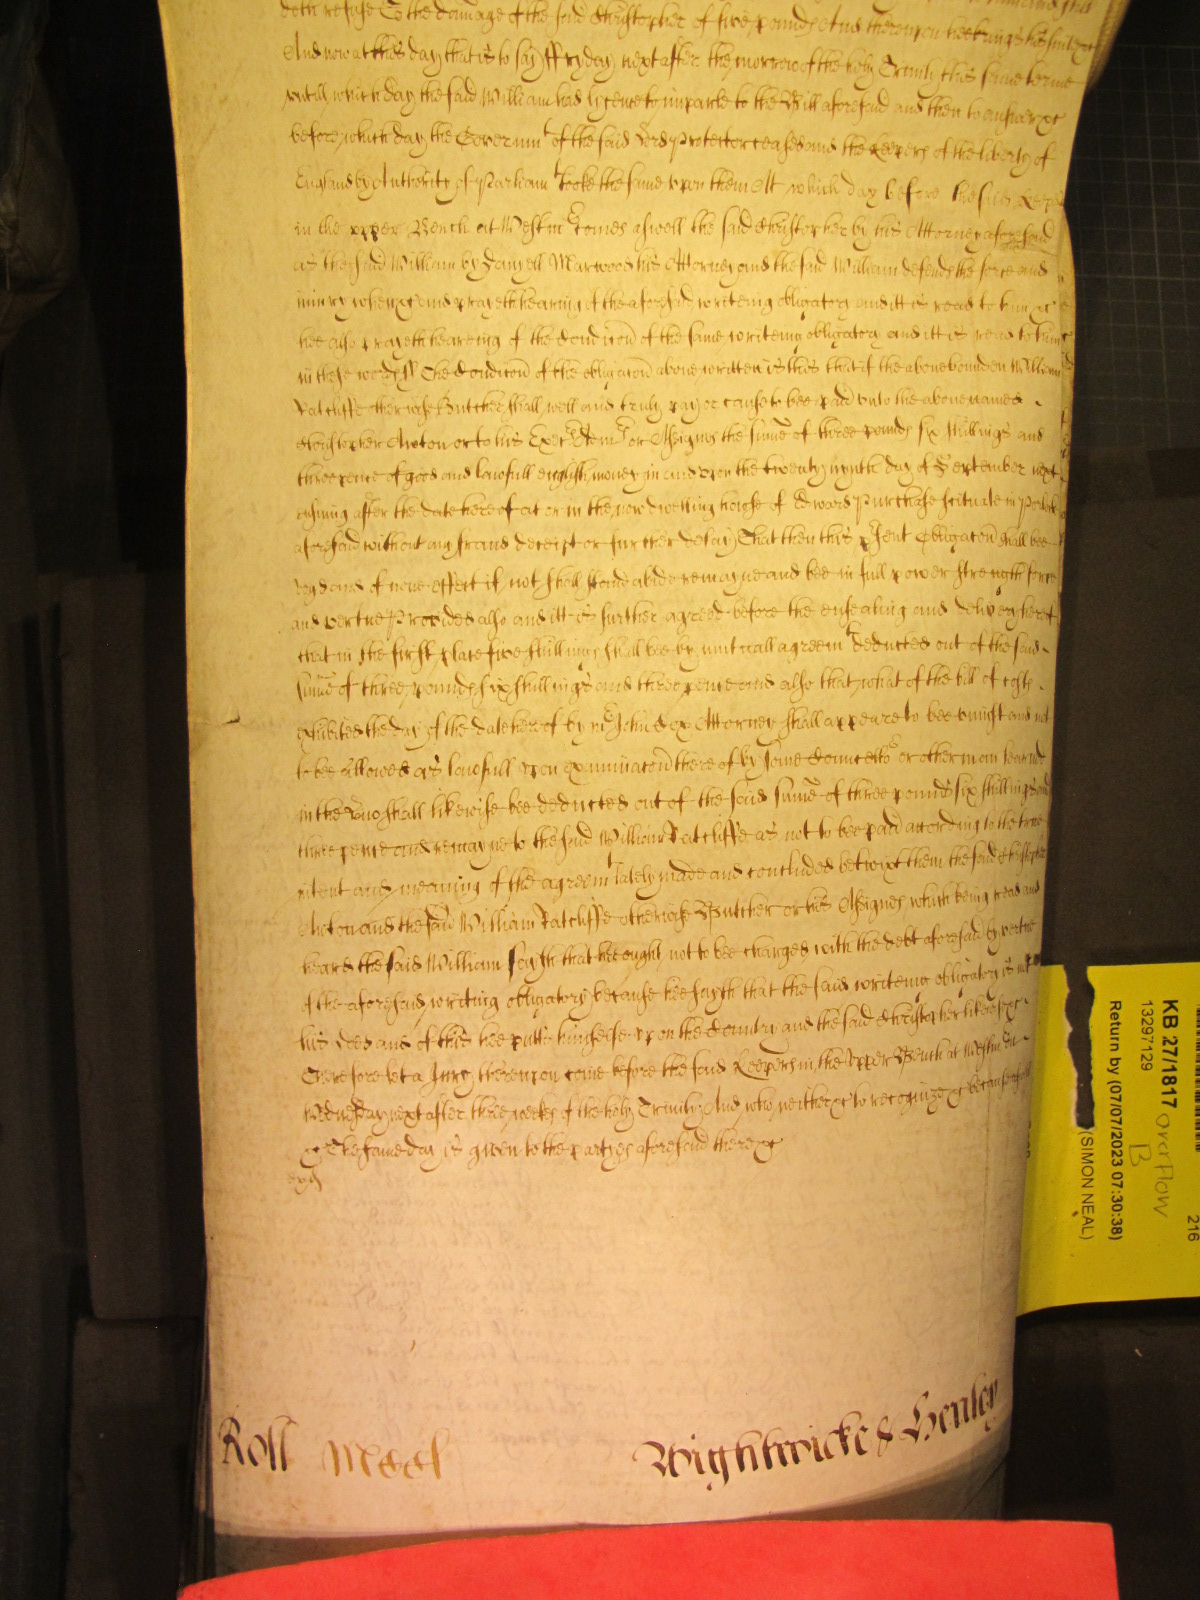 doth refuse To the damage of the said Christopher of five pounds And thereupon hee brings his suite &c
And now at this day that is to say ffryday next after the morrow of the holy Trinity this same terme
untill which day the said William had lycence to imparle to the Bill aforesaid and then to answer &c
before which day the Governmt of the said Lord Protector ceased and the keepers of the liberty of
England by Authority of Parliamt tooke the same upon them At which day before the said keepers
in the upper Bench at Westmr comes aswell the said Christopher by his Attorney aforesaid
as the said William by Danyell Marwood his Attorney and the said William defends the force and
iniury when &c and prayeth hearing of the aforesaid writeing obligatory and itt is read to him &c
hee also prayeth heareing of the Condicon of the same writeing obligatory and itt is read to him
in these words ss The Condicon of the obligacon above written is this that if the abovebounden William
Ratcliffe otherwise Butcher shall well and truly pay or cause to bee paid unto the abovenamed
Christopher Anton or to his Executrs Admrs or Assignes the sume of three pounds six shillings and
threepence of good and lawfull english money in and upon the twenty nynth day of September next
ensuing after the date hereof at or in the now dwelling house of Edward Purchase scituate in
aforesaid without any fraud deceipt or further delay That then this psent Obligacon shall bee
voyd and of none effect if not shall stand abide remayne and bee in full power strength force
and vertue Provided also and itt is further agreed before the ensealing and delivery hereof
that in the first place five shillings shall bee by mutuall agreemt deducted out of the said
sume of three pounds six shillings and threepence and also that what of the bill of costs
exhibited the day of the date hereof by mr John Cox Attorney shall appeare to bee uniust and not
to bee allowed as lawfull upon examinacon thereof by some Councellor or other man learned
in the Law shall likewise bee deducted out of the said sume of three pounds six shillings and
three pence and remayne to the said William Ratcliffe as not to bee paid according to the true
intent and meaning of the agreemt lately made and concluded betwixt them the said Christopher
Anton and the said William Ratcliffe otherwise Butcher or his Assignes which being read and
heard the said William sayth that hee ought not to bee charged with the debt aforesaid by vertue
of the aforesaid writing obligatory because hee sayth that the said writeing obligatory is not
his deed and of this hee putts himselfe upon the Country and the said Christopher likewise &c
Therefore let a Jury thereupon come before the said Keepers in the upper Bench at Westmr on
Wednesday next after three weekes of the holy Trinity And who neither &c to recognize &c because aswell
&c The same day is given to the partyes aforesaid there &c
Roll
Wightwicke & Henley
KB 27/1817 overflow
B
13297129
Return by (07/07/2023 07:30:38)
(SIMON NEAL)
216